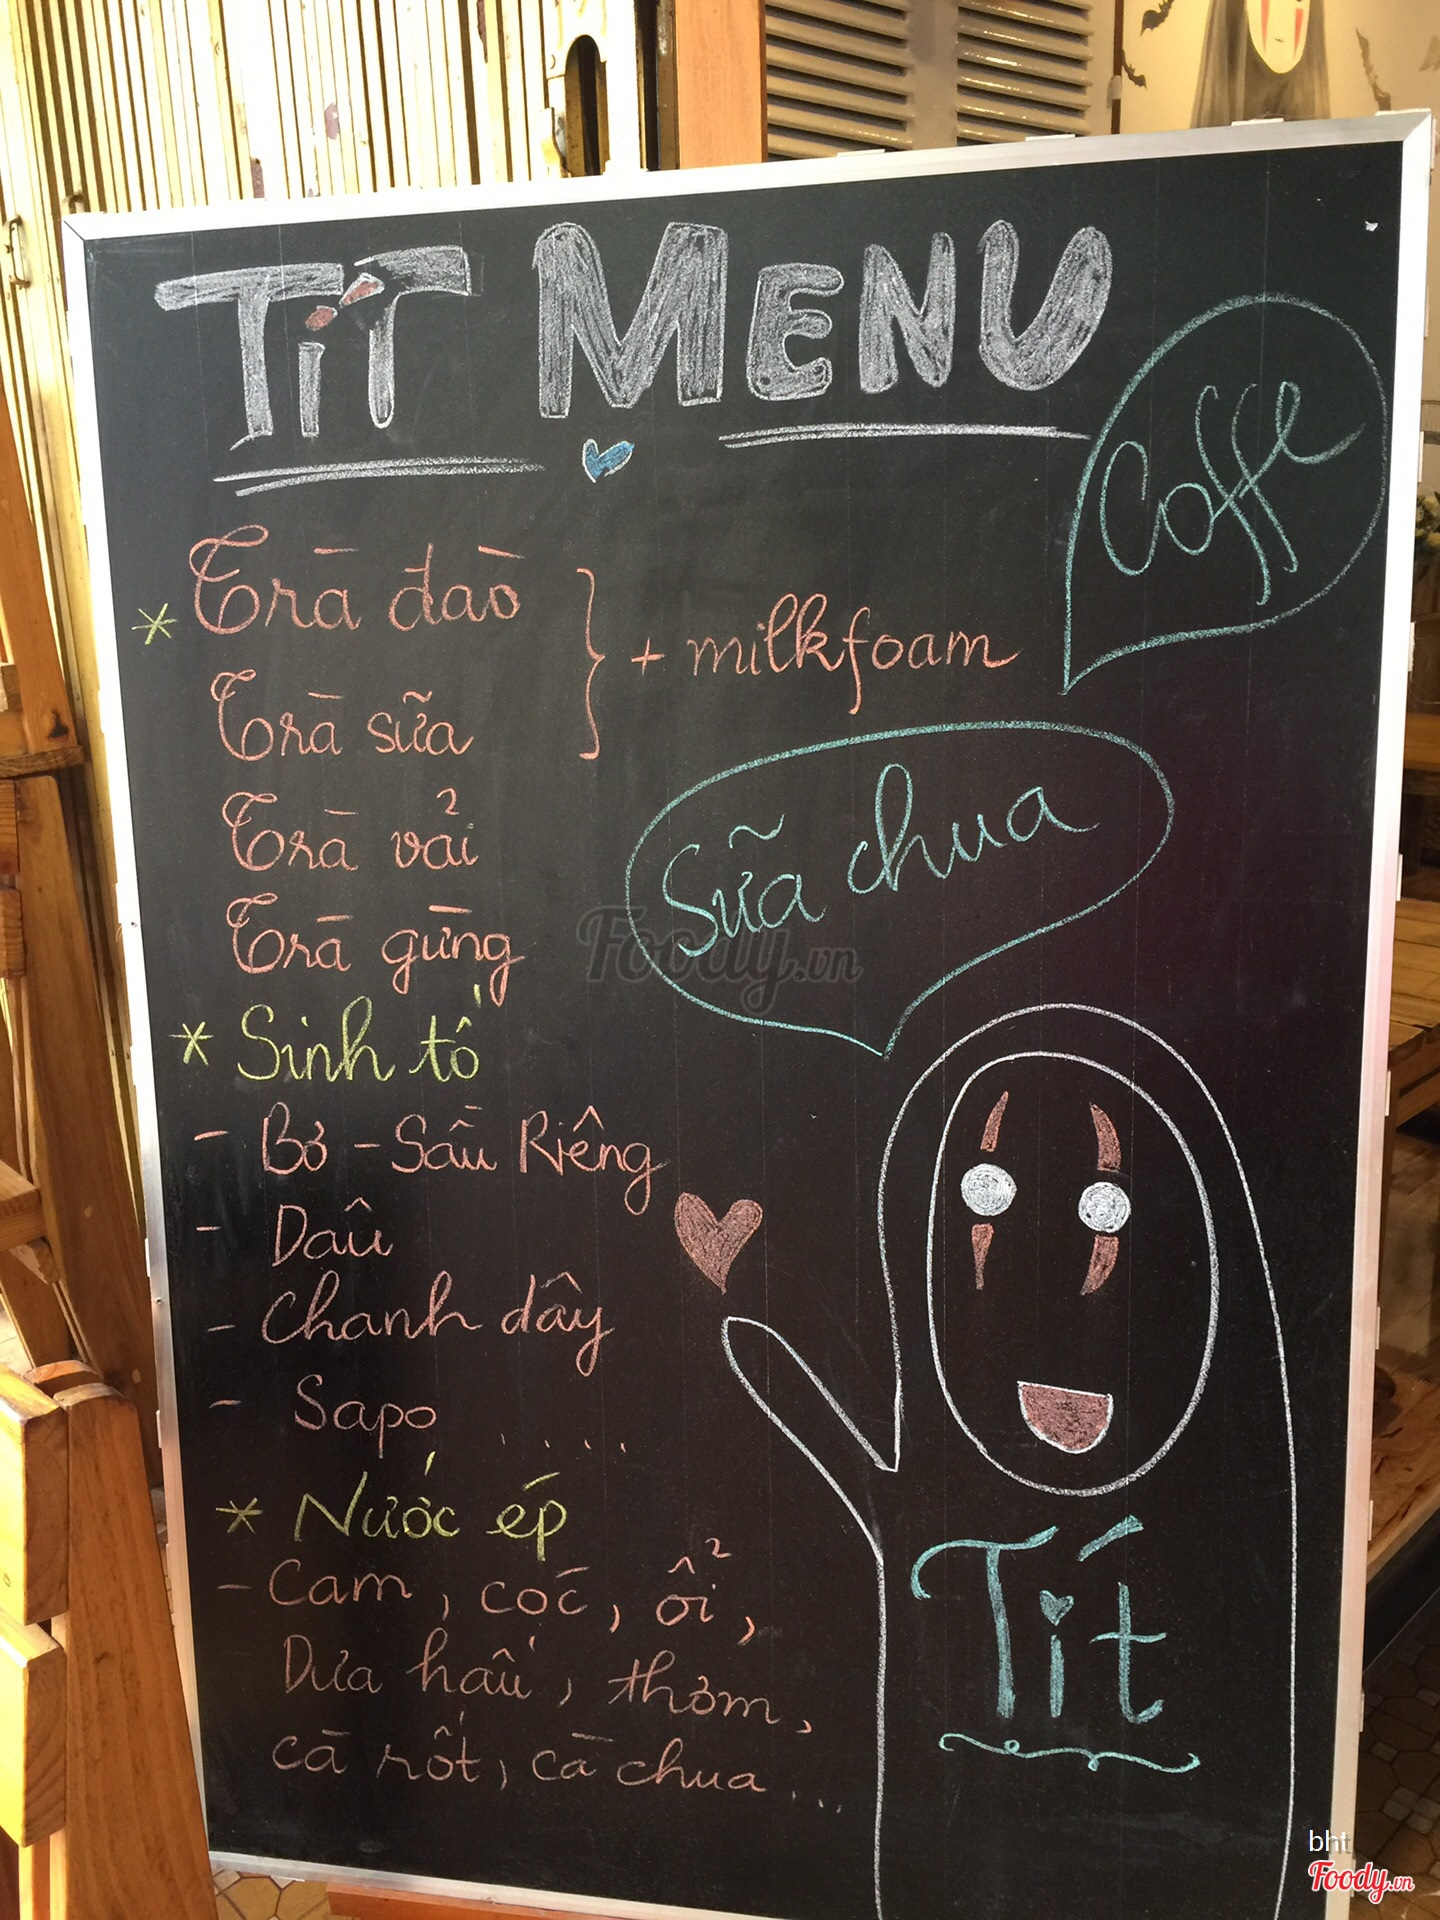 TíT MENU
Coffe
* Trà đào
Trà sữa
} + milkfoam
Trà vải
Trà gừng
Sữa chua
* Sinh tố
- Bơ - Sầu Riêng
- Dâu
- Chanh dây
- Sapo ....
* Nước ép
- Cam, cóc, ổi,
Dưa hấu, thơm,
cà rốt, cà chua ...
Tít
Foody.vn
bht
Foody.vn